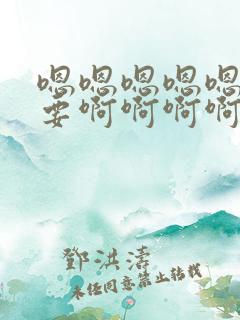 嗯嗯嗯嗯嗯
要啊啊啊啊
鄧洪濤
未经同意禁止转载